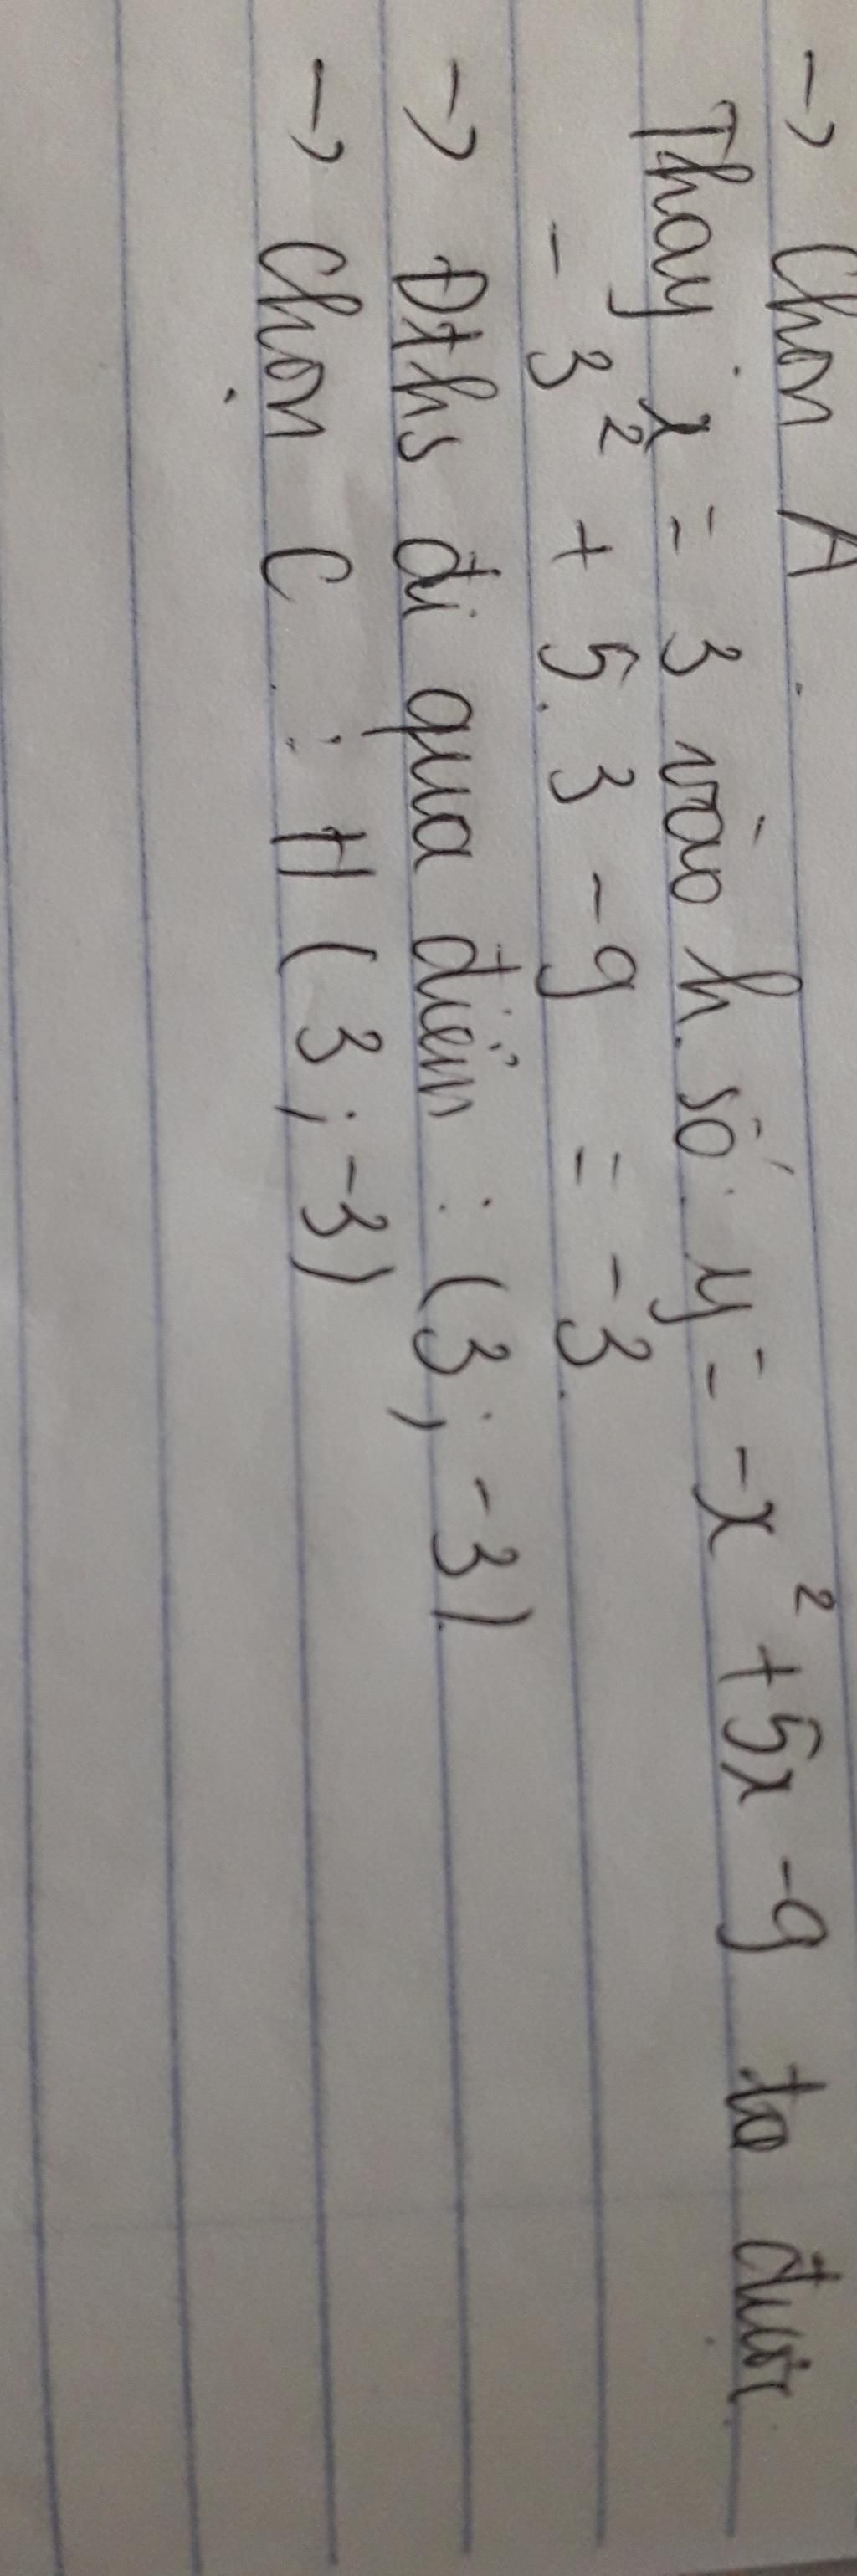 → Chọn A.
Thay x = 3 vào h.số y = -x² + 5x - 9 ta được
- 3² + 5.3 - 9 = -3.
→ Đths đi qua điểm : (3; -3).
→ Chọn C : H (3; -3)